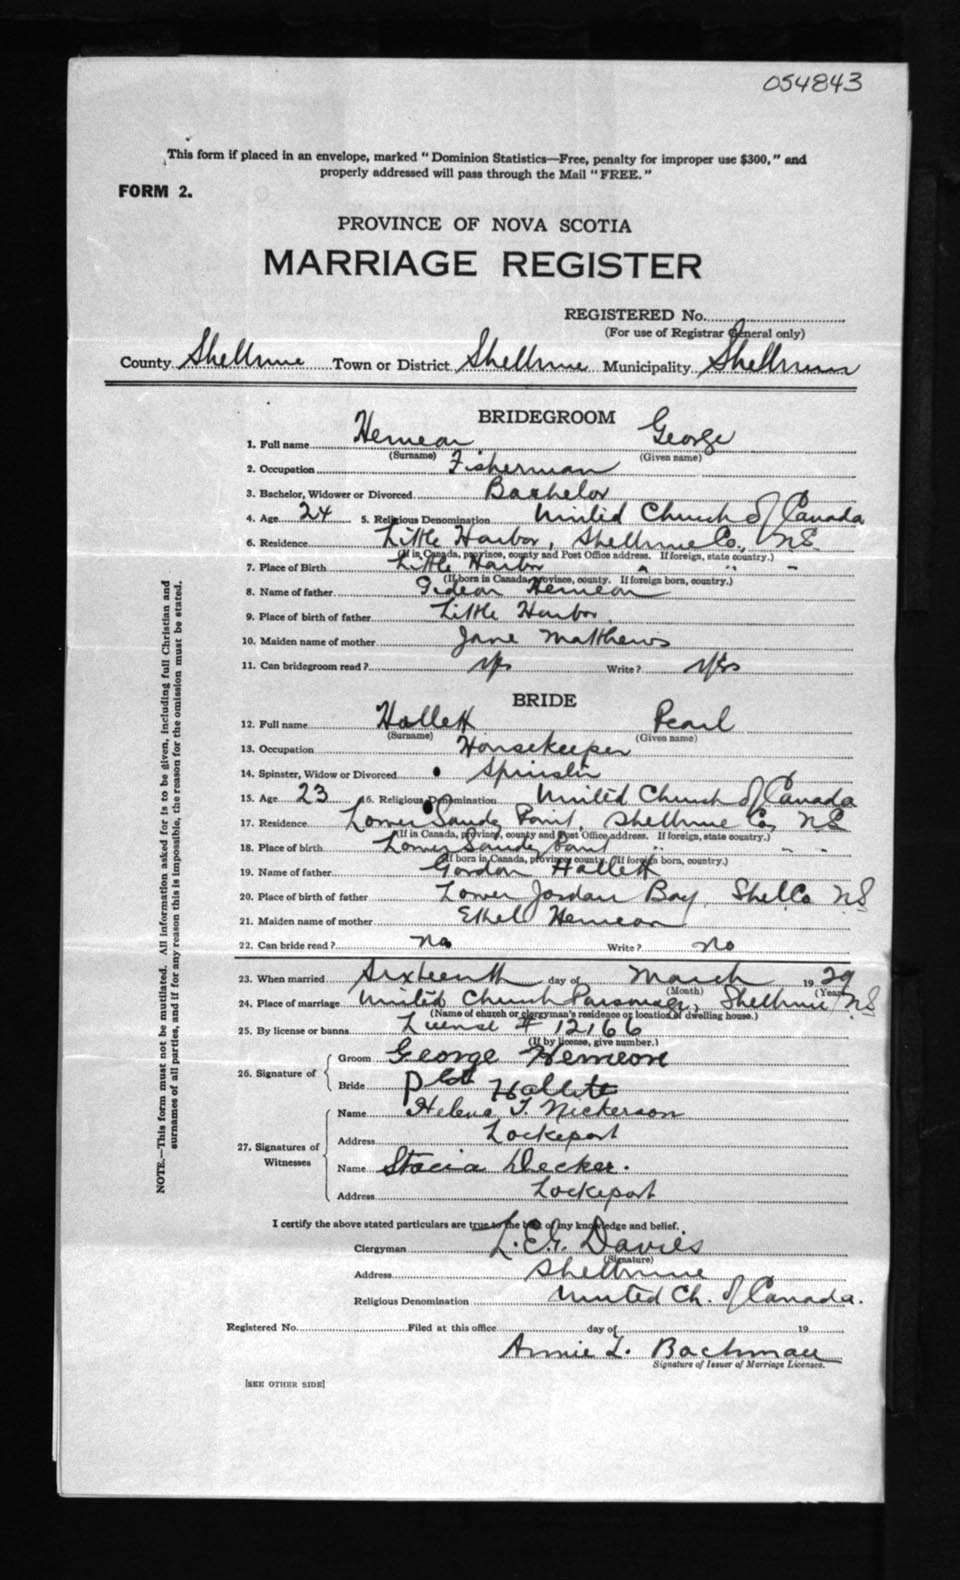 054843
This form if placed in an envelope, marked "Dominion Statistics—Free, penalty for improper use $300," and
properly addressed will pass through the Mail "FREE."
FORM 2.
PROVINCE OF NOVA SCOTIA
MARRIAGE REGISTER
REGISTERED No.
(For use of Registrar General only)
County Shelburne Town or District Shelburne Municipality Shelburne
BRIDEGROOM
1. Full name Hemeon George
(Surname) (Given name)
2. Occupation Fisherman
3. Bachelor, Widower or Divorced Bachelor
4. Age 24 5. Religious Denomination United Church of Canada
6. Residence Little Harbor, Shelburne Co., N.S.
(If in Canada, province, county and Post Office address. If foreign, state country.)
7. Place of Birth Little Harbor " " "
(If born in Canada, province, county. If foreign born, country.)
8. Name of father Gideon Hemeon
9. Place of birth of father Little Harbor
10. Maiden name of mother Jane Matthews
11. Can bridegroom read? Yes Write? Yes
BRIDE
12. Full name Hallett Pearl
(Surname) (Given name)
13. Occupation Housekeeper
14. Spinster, Widow or Divorced Spinster
15. Age 23 16. Religious Denomination United Church of Canada
17. Residence Lower Sandy Point, Shelburne Co, N.S
(If in Canada, province, county, and Post Office address. If foreign, state country.)
18. Place of birth Lower Sandy Point " " "
(If born in Canada, province county. If foreign born, country.)
19. Name of father Gordon Hallett
20. Place of birth of father Lower Jordan Bay, Shel Co N.S
21. Maiden name of mother Ethel Hemeon
22. Can bride read? no Write? no
23. When married Sixteenth day of March 1929
(Month) (Year)
24. Place of marriage United Church Parsonage, Shelburne N.S
(Name of church or clergyman's residence or location of dwelling house.)
25. By license or banns License # 12166
(If by license, give number.)
26. Signature of
Groom George Hemeon
Bride Hallett
27. Signatures of Witnesses
Name Helena T. Nickerson
Address Lockeport
Name Stacia Decker.
Address Lockeport
I certify the above stated particulars are true to the best of my knowledge and belief.
Clergyman Davies
(Signature)
Address Shelburne
Religious Denomination United Ch. of Canada.
Registered No. Filed at this office day of 19
Annie L. Bachman
Signature of Issuer of Marriage Licenses.
[SEE OTHER SIDE]
NOTE.—This form must not be mutilated. All information asked for is to be given, including full Christian and
surnames of all parties, and if for any reason this is impossible, the reason for the omission must be stated.